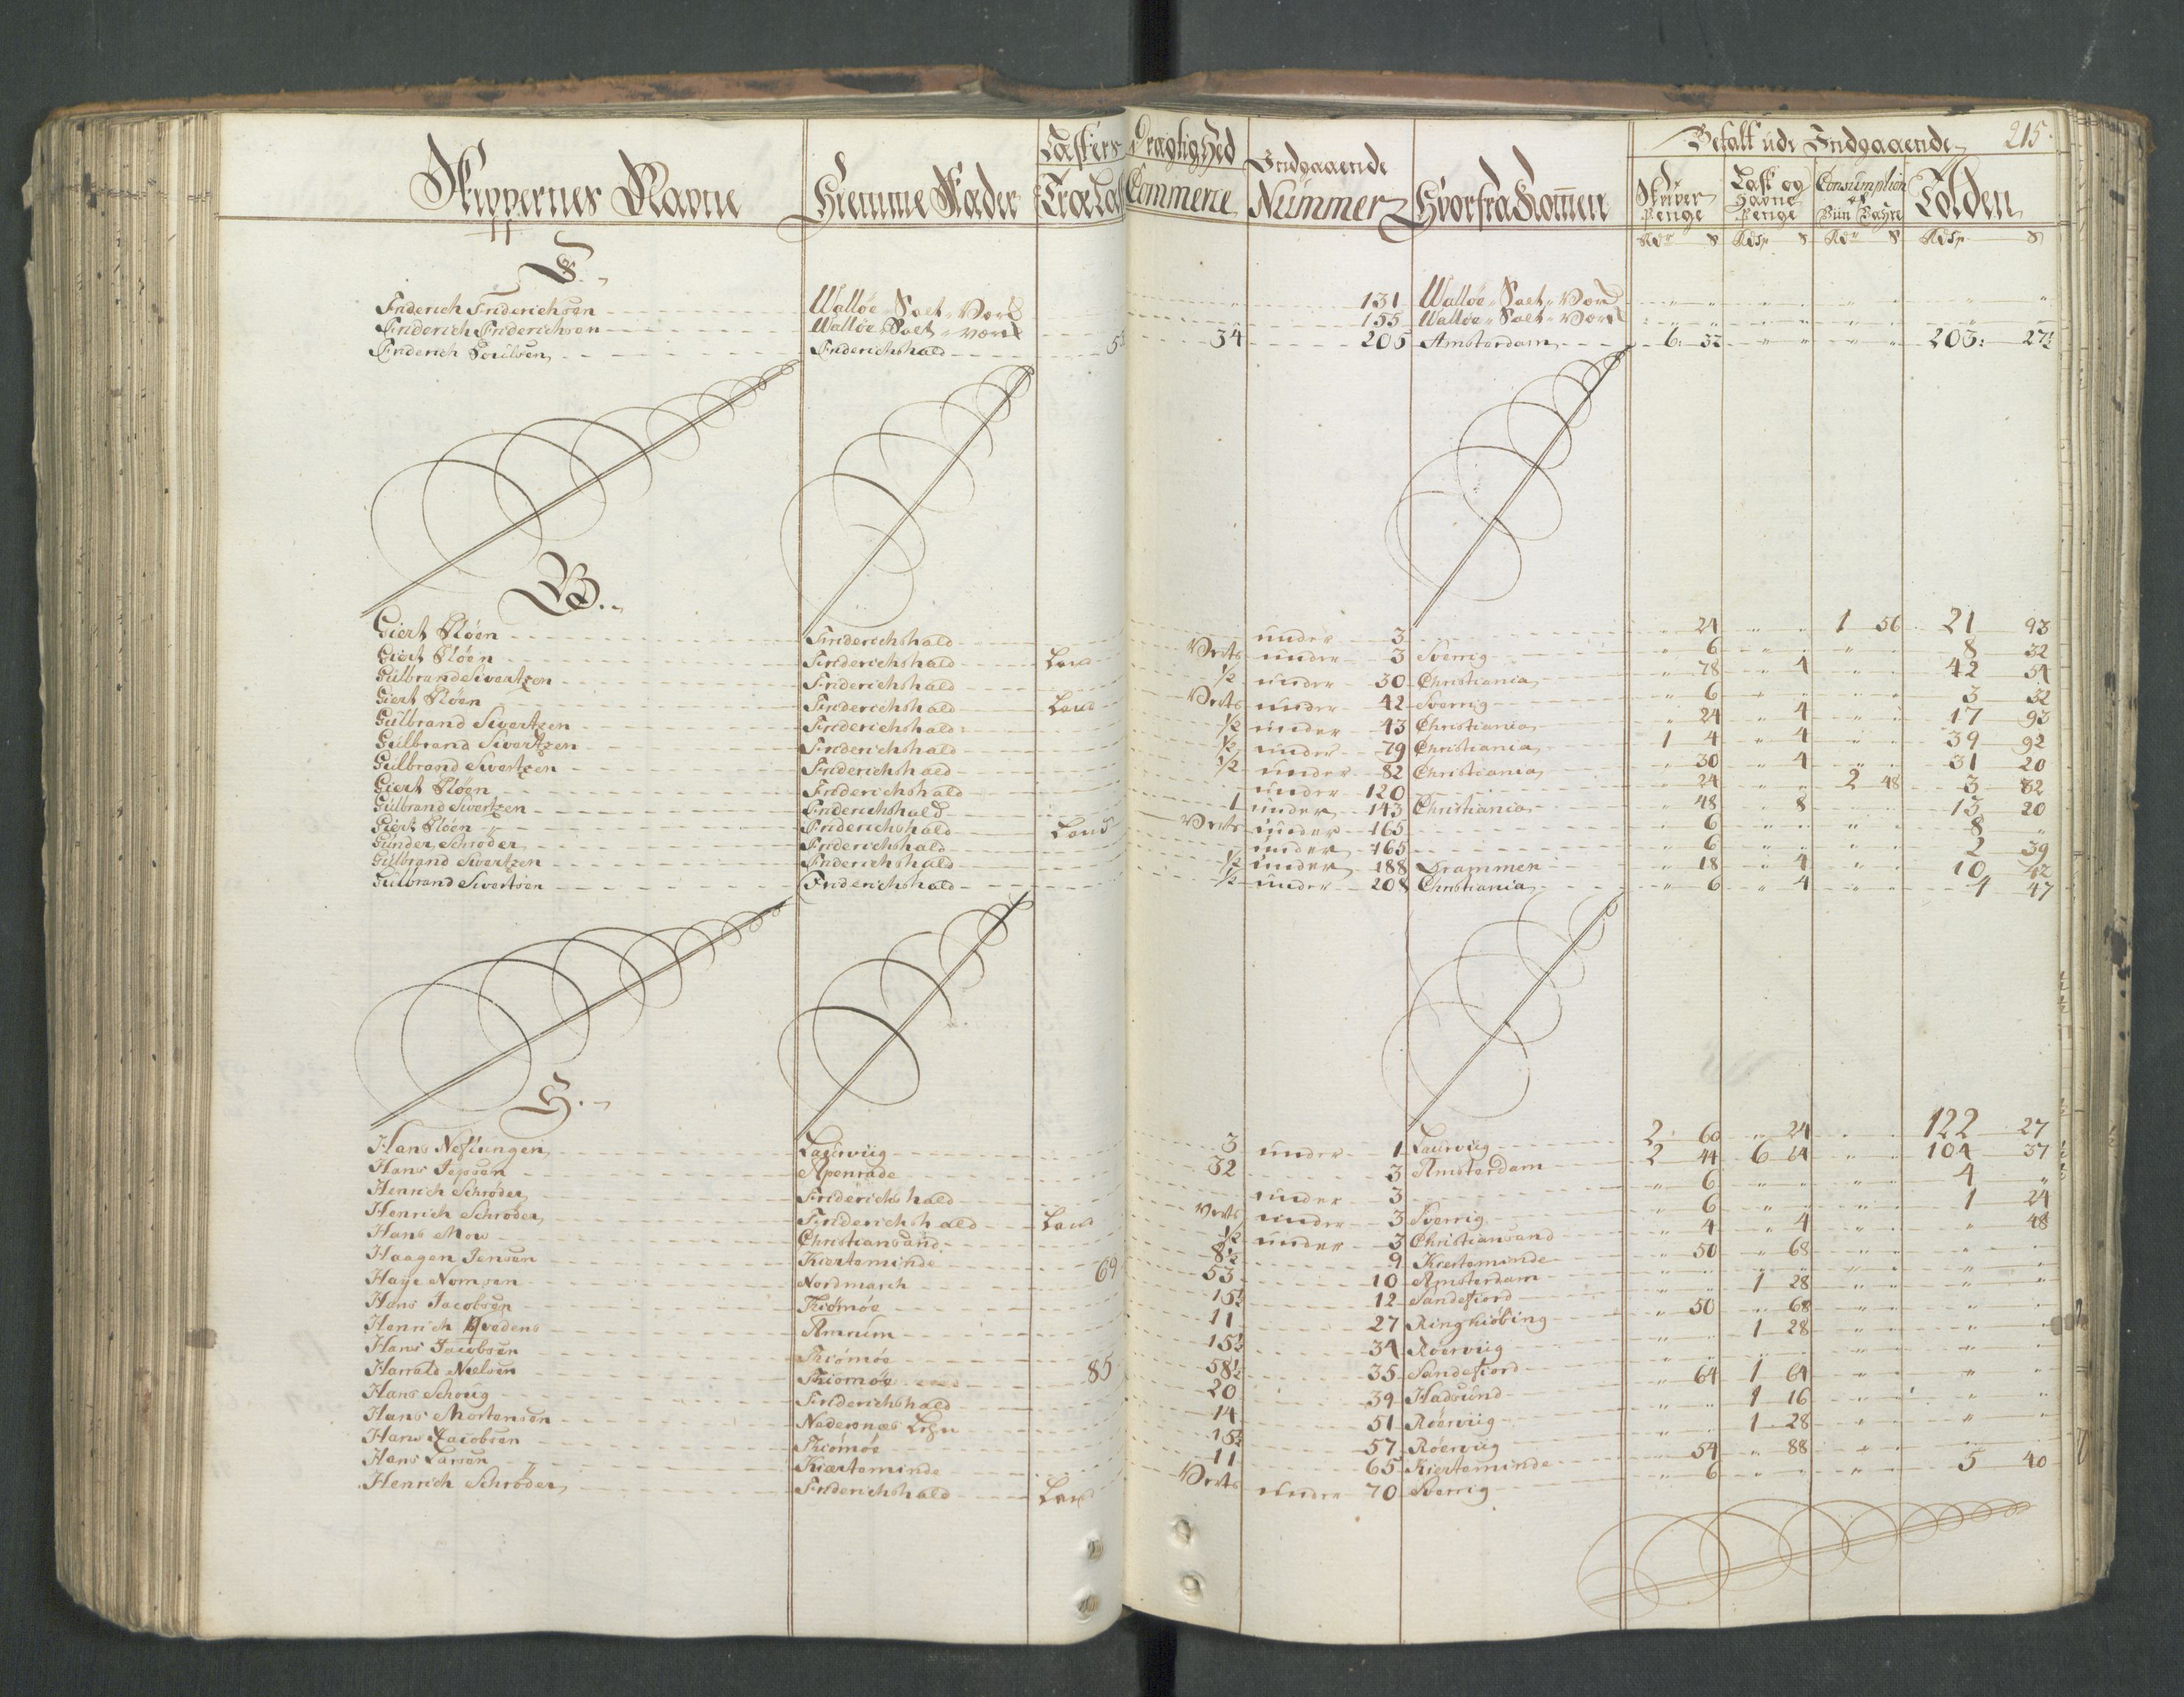 Skippernes Navne Hiemme Stæder Læsters Dragtighed Indgaaende Betalt udi Indgaaende 215.
Træ La Commerce Nummer Hvorfra Kommen Skriver Penge Last og Havne Penge Consumption Tolden
Rdr s Rdr s Rdr s Rdr s
F.
Friderich Friderichsen Walløe Salt Værk 131 Walløe Salt Værk
Friderich Friderichsen Walløe Salt Værk 155 Walløe Salt Værk
Friderich Poulsen Friderichshald 34 205 Amsterdam 6: 33 203: 27½
G.
Giert Bløen Friderichshald under 3 24 1 56 21 93
Giert Bløen Friderichshald Land Verts under 3 Sverrig 6 8 32
Gulbrand Sivertzen Friderichshald ½ under 30 Christiania 78 4 42 54
Giert Bløen Friderichshald Land Verts under 42 Sverrig 6 3 32
Gulbrand Sivertzen Friderichshald ½ under 43 Christiania 24 4 17 93
Gulbrand Sivertzen Friderichshald ½ under 79 Christiania 1 4 4 39 92
Gulbrand Sivertzen Friderichshald ½ under 82 Christiania 30 4 31 20
Giert Bløen Friderichshald under 120 24 2 48 3 82
Gulbrand Sivertzen Friderichshald 1 under 143 Christiania 48 8 13 20
Giert Bløen Friderichshald Land Verts under 165 6 8
Gunder Schrøder Friderichshald under 165 6 2 39
Gulbrand Sivertzen Friderichshald ½ under 188 Drammen 18 4 10 42
Gulbrand Sivertsen Friderichshald ½ under 208 Christiania 6 4 4 47
H.
Hans Neslungen Laurviig 3 under 1 Laurviig 2 60 24 122 27
Hans Jepsen Apenrade 32 3 Amsterdam 2 44 6 64 104 37
Henrich Schrøder Friderichshald under 3 6 4
Henrich Schrøder Friderichshald Land Verts under 3 Sverrig 6 1 24
Hans Mow Christiansand ½ under 3 Christiansand 4 4 48
Haagen Jensen Kierteminde 8½ 9 Kierteminde 50 68
Haye Nomsen Nordmarch 69 53 10 Amsterdam
Hans Jacobsen Thiømøe 15½ 12 Sandefiord 1 28
Henrich Qvedens Amrum 11 27 Ringkiøbing 50 68
Hans Jacobsen Thiømøe 15½ 34 Røerviig 1 28
Harrald Nielsen Thiømøe 85 58½ 35 Sandefiord
Hans Schoug Friderichshald 20 39 Hadsund 64 1 64
Hans Mortensen Nedernæs Lehn 14 51 Røerviig 1 16
Hans Jacobsen Thiømøe 15½ 57 Røerviig 1 28
Hans Larsen Kierteminde 11 65 Kierteminde 54 88
Henrich Schrøder Friderichshald Land Verts under 70 Sverrig 6 5 40